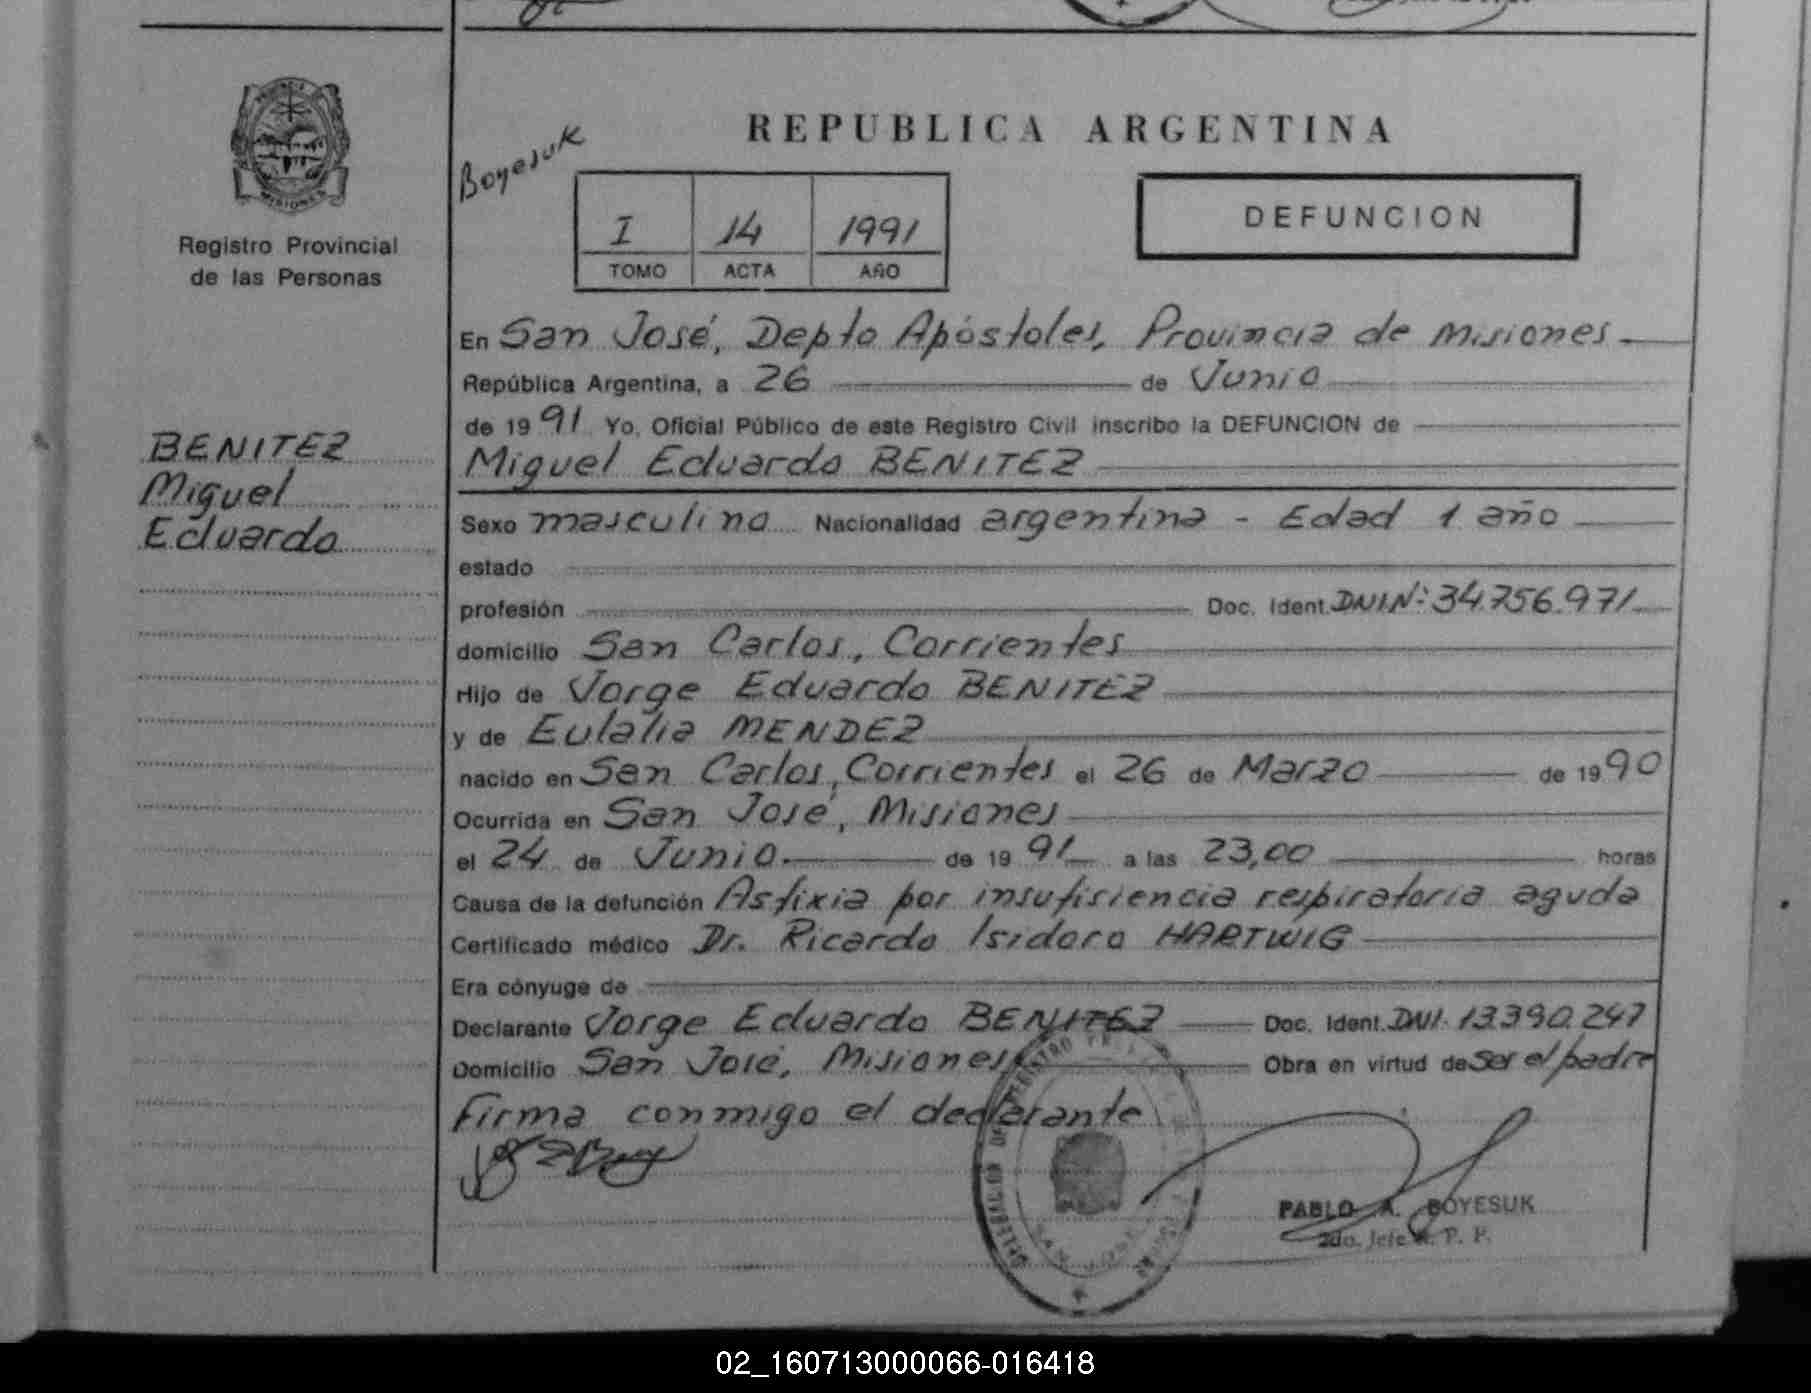 REPUBLICA ARGENTINA
Boyesuk
I 14 1991
TOMO ACTA AÑO
DEFUNCION
MISIONES
Registro Provincial
de las Personas
BENITEZ
Miguel
Eduardo
En San José, Depto Apóstoles, Provincia de Misiones
República Argentina, a 26 de Junio
de 1991 Yo, Oficial Público de este Registro Civil inscribo la DEFUNCION de
Miguel Eduardo BENITEZ
Sexo masculino Nacionalidad argentina - Edad 1 año
estado
profesión Doc. Ident. DNI Nº: 34.756.971
domicilio San Carlos, Corrientes
Hijo de Jorge Eduardo BENITEZ
y de Eulalia MENDEZ
nacido en San Carlos, Corrientes el 26 de Marzo de 1990
Ocurrida en San José, Misiones
el 24 de Junio de 1991 a las 23,00 horas
Causa de la defunción Asfixia por insuficiencia respiratoria aguda
Certificado médico Dr. Ricardo Isidoro HARTWIG
Era cónyuge de
Declarante Jorge Eduardo BENITEZ Doc. Ident. DNI. 13.390.247
Domicilio San José, Misiones Obra en virtud de ser el padre
Firma conmigo el declarante
SAN JOSE
PABLO A. BOYESUK
2do. Jefe R. P. P.
02_160713000066-016418